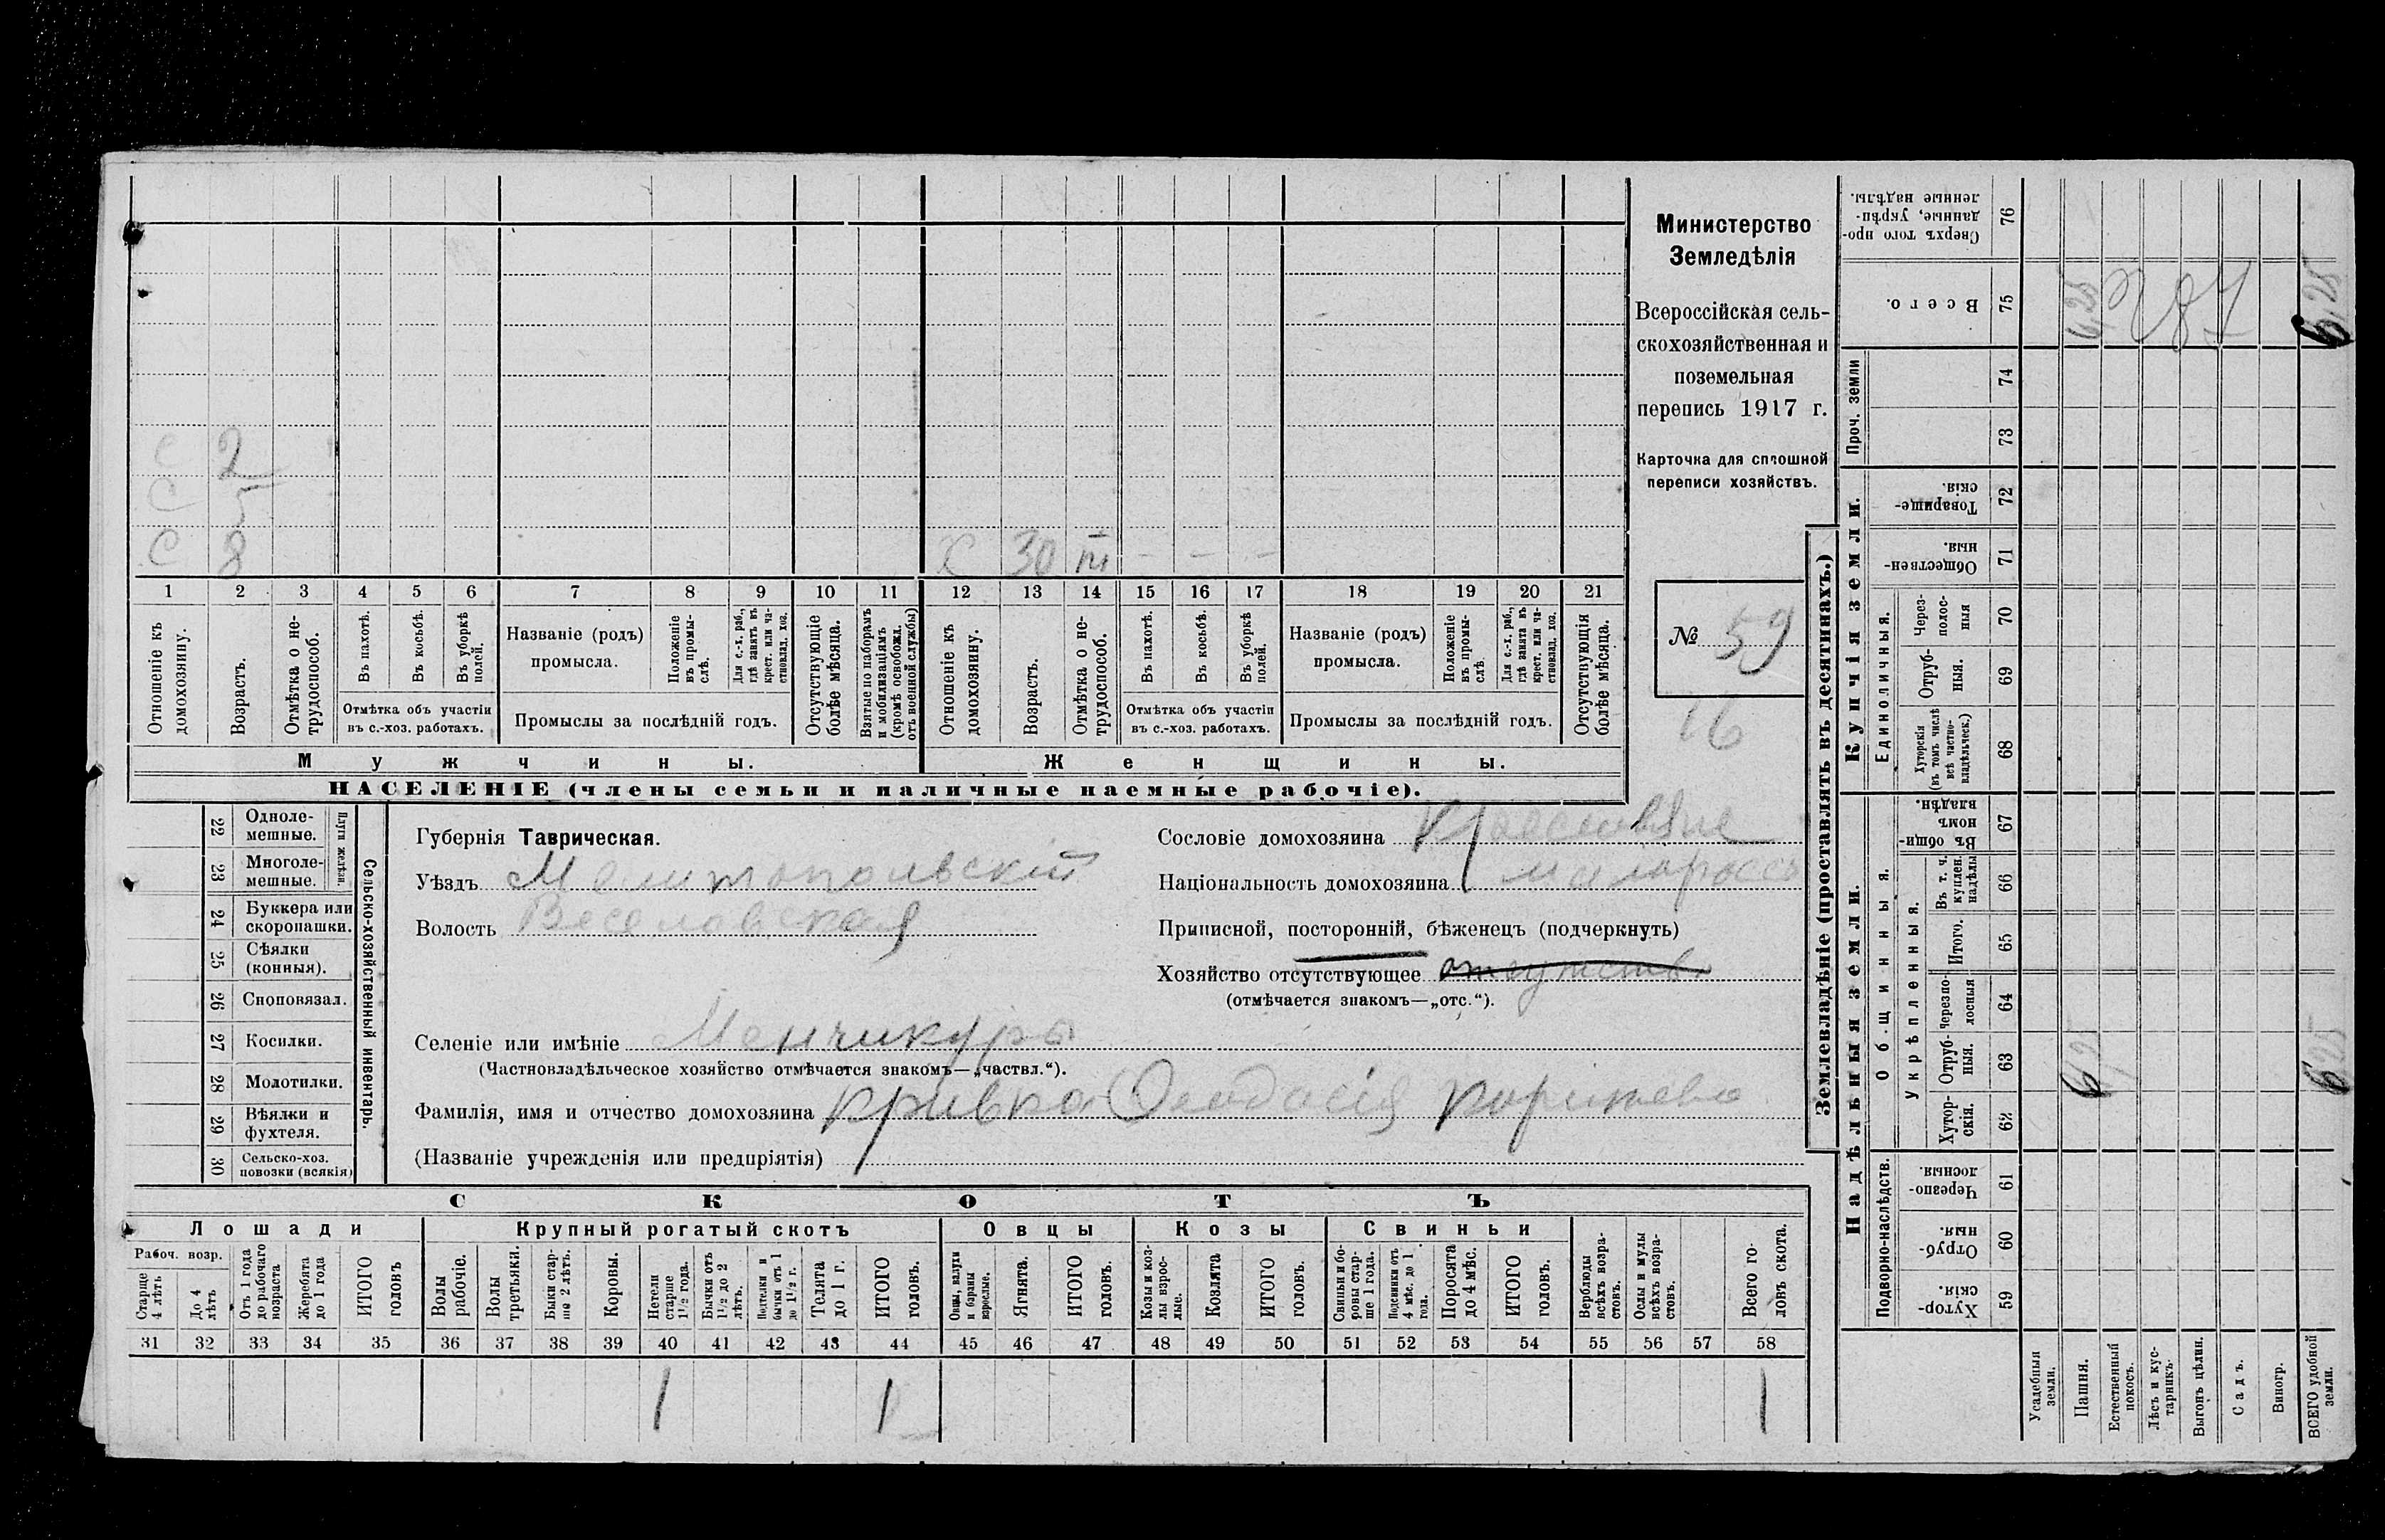 Министерство
Земледѣлія
Всероссійская сель-
скохозяйственная и
поземельная
перепись 1917 г.
Карточка для сплошной
переписи хозяйствъ.
№ 59
16
С 2
С 5
С 8
Х 30 — — —
1 2 3 4 5 6 7 8 9 10 11 12 13 14 15 16 17 18 19 20 21
Отношеніе къ домохозяину.
Возрастъ.
Отмѣтка о не-трудоспособ.
Въ пахотѣ.
Въ косьбѣ.
Въ уборкѣ полей.
Отмѣтка объ участіи
въ с.-хоз. работахъ.
Названіе (родъ)
промысла.
Положеніе въ промы-слѣ.
Для с.-х. раб., гдѣ занятъ въ крест. или ча-стновлад. хоз.
Промыслы за послѣдній годъ.
Отсутствующіе болѣе мѣсяца.
Взятые по наборамъ и мобилизаціямъ (кромѣ освобожд. отъ военной службы)
Отношеніе къ домохозяину.
Возрастъ.
Отмѣтка о не-трудоспособ.
Въ пахотѣ.
Въ косьбѣ.
Въ уборкѣ полей.
Отмѣтка объ участіи
въ с.-хоз. работахъ.
Названіе (родъ)
промысла.
Положеніе въ промы-слѣ.
Для с.-х. раб., гдѣ занята въ крест. или ча-стновлад. хоз.
Промыслы за послѣдній годъ.
Отсутствующія болѣе мѣсяца.
Мужчины. Женщины.
НАСЕЛЕНІЕ (члены семьи и наличные наемные рабочіе).
Сельско-хозяйственный инвентарь.
Плуги желѣзн.
22 Одноле-мешные.
23 Многоле-мешные.
24 Буккера или скоропашки.
25 Сѣялки (конныя).
26 Сноповязал.
27 Косилки.
28 Молотилки.
29 Вѣялки и фухтеля.
30 Сельско-хоз. повозки (всякія)
Губернія Таврическая.
Уѣздъ Мелитопольскій
Волость Веселовская
Сословіе домохозяина
Національность домохозяина малороссъ
Приписной, посторонній, бѣженецъ (подчеркнуть)
Хозяйство отсутствующее отсутств
(отмѣчается знакомъ—„отс.“).
Селеніе или имѣніе Менчикуры
(Частновладѣльческое хозяйство отмѣчается знакомъ—„частвл.“).
Фамилія, имя и отчество домохозяина Кривко
(Названіе учрежденія или предпріятія)
СКОТЪ
Лошади Крупный рогатый скотъ Овцы Козы Свиньи
Рабоч. возр.
Старше 4 лѣтъ
До 4 лѣтъ
Отъ 1 года до рабочаго возраста
Жеребята до 1 года
ИТОГО головъ
Волы рабочіе.
Волы третьяки.
Быки стар-ше 2 лѣтъ.
Коровы.
Нетели старше 1 1/2 года.
Бычки отъ 1 1/2 до 2 лѣтъ.
Подтелки и бычки отъ 1 до 1 1/2 г.
Телята до 1 г.
ИТОГО головъ.
Овцы, валухи и бараны взрослые.
Ягнята.
ИТОГО головъ.
Козы и коз-лы взрос-лые.
Козлята
ИТОГО головъ.
Свиньи и бо-ровы стар-ше 1 года.
Подсвинки отъ 4 мѣс. до 1 года.
Поросята до 4 мѣс.
ИТОГО головъ.
Верблюды всѣхъ возра-стовъ.
Ослы и мулы всѣхъ возра-стовъ.
Всего го-ловъ скота.
31 32 33 34 35 36 37 38 39 40 41 42 43 44 45 46 47 48 49 50 51 52 53 54 55 56 57 58
1 1 1
Землевладѣніе (проставлять въ десятинахъ.)
Надѣльныя земли. Купчія земли. Проч. земли
Подворно-наслѣдств.
Общинныя.
Укрѣпленныя.
Единоличныя.
Хутор-скія. 59
Отруб-ныя. 60
Черезпо-лосныя. 61
Хутор-скія. 62
Отруб-ныя. 63
Черезпо-лосныя 64
Итого. 65
Въ т. ч. куплен. надѣлы 66
Въ общи-номъ владѣн. 67
Хуторскія (въ томъ числѣ всѣ частно-владѣльческ.) 68
Отруб-ныя. 69
Через-полос-ныя 70
Обществен-ныя. 71
Товарище-скія. 72
73
74
Всего. 75
Сверхъ того про-данные, укрѣп-ленные надѣлы. 76
Усадебныя земли.
Пашня. 6,25
Естественный покосъ.
Лѣсъ и кус-тарникъ.
Выгонъ цѣлин.
Садъ.
Виногр.
ВСЕГО удобной земли. 6,25 6,25